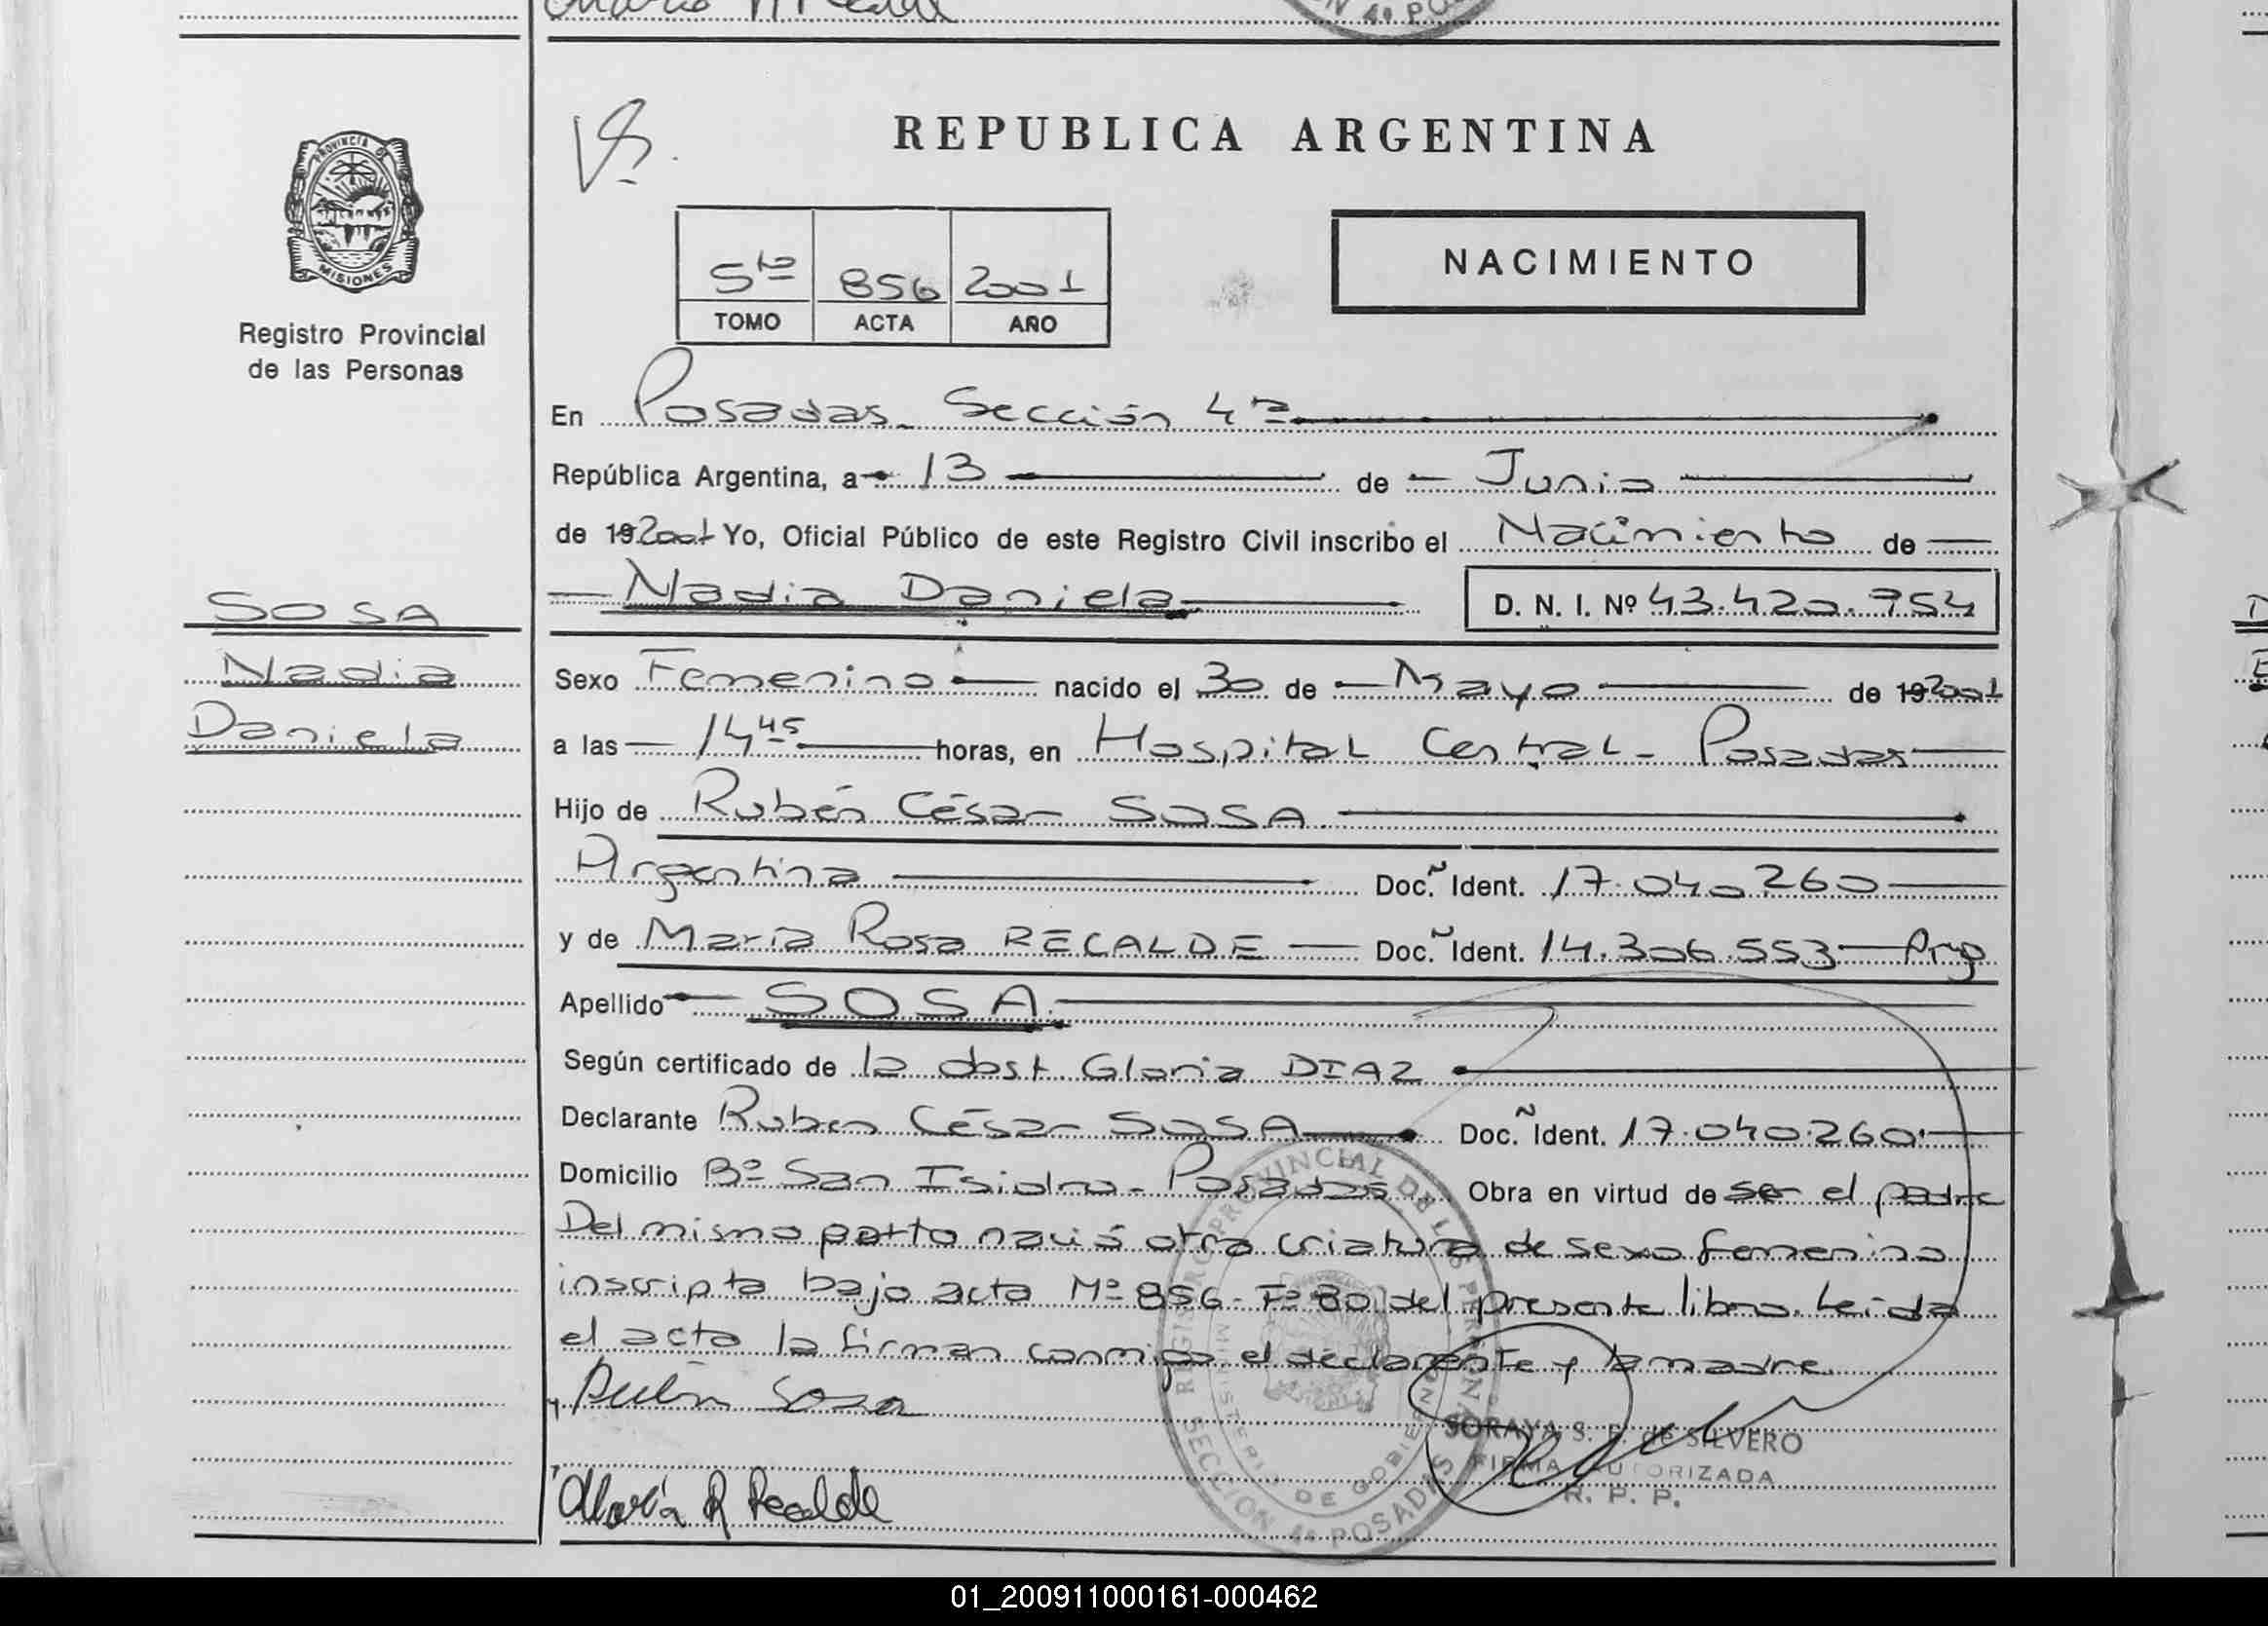 REPUBLICA ARGENTINA
PROVINCIA DE
MISIONES
Registro Provincial
de las Personas
5to 856 2001
TOMO ACTA AÑO
NACIMIENTO
En Posadas - Sección 4ta
República Argentina, a 13 de Junio
de 192001 Yo, Oficial Público de este Registro Civil inscribo el Nacimiento de
Nadia Daniela D. N. I. Nº 43.420.754
SOSA
Nadia
Daniela
Sexo Femenino nacido el 30 de Mayo de 192001
a las 14 45 horas, en Hospital Central - Posadas
Hijo de Rubén César SOSA
Argentina Doc. Ident. 17.040.260
y de María Rosa RECALDE Doc. Ident. 14.306.553 Arg
Apellido SOSA
Según certificado de la obst. Gloria DIAZ
Declarante Ruben César SOSA Doc. Ident. 17.040.260
Domicilio Bº San Isidro - Posadas Obra en virtud de ser el padre
Del mismo parto nació otra criatura de sexo femenino
inscripta bajo acta Nº 856 - Fº 80 del presente libro. Leida
el acta la firman conmigo el declarante y la madre.
Rubén Sosa
María R Recalde
REGISTRO PROVINCIAL DE LAS PERSONAS
MINISTERIO DE GOBIERNO
SECCION 4ª POSADAS
SORAYA S. de SILVERO
FIRMA AUTORIZADA
R. P. P.
01_200911000161-000462